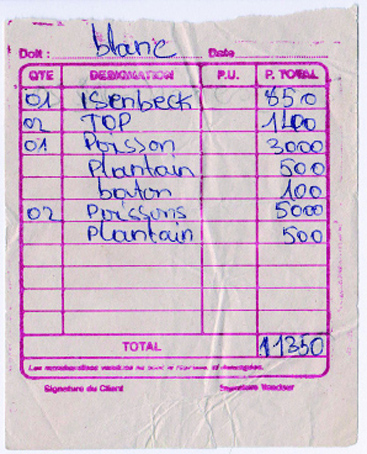 blanc
Doit : Date
QTE DESIGNATION P.U. P. TOTAL
01 Isenbeck 850
02 TOP 1400
01 Poisson 3000
Plantain 500
baton 100
02 Poissons 5000
Plantain 500
TOTAL 11350
Les marchandises vendues ne sont ni reprises ni échangées.
Signature du Client Signature Vendeur